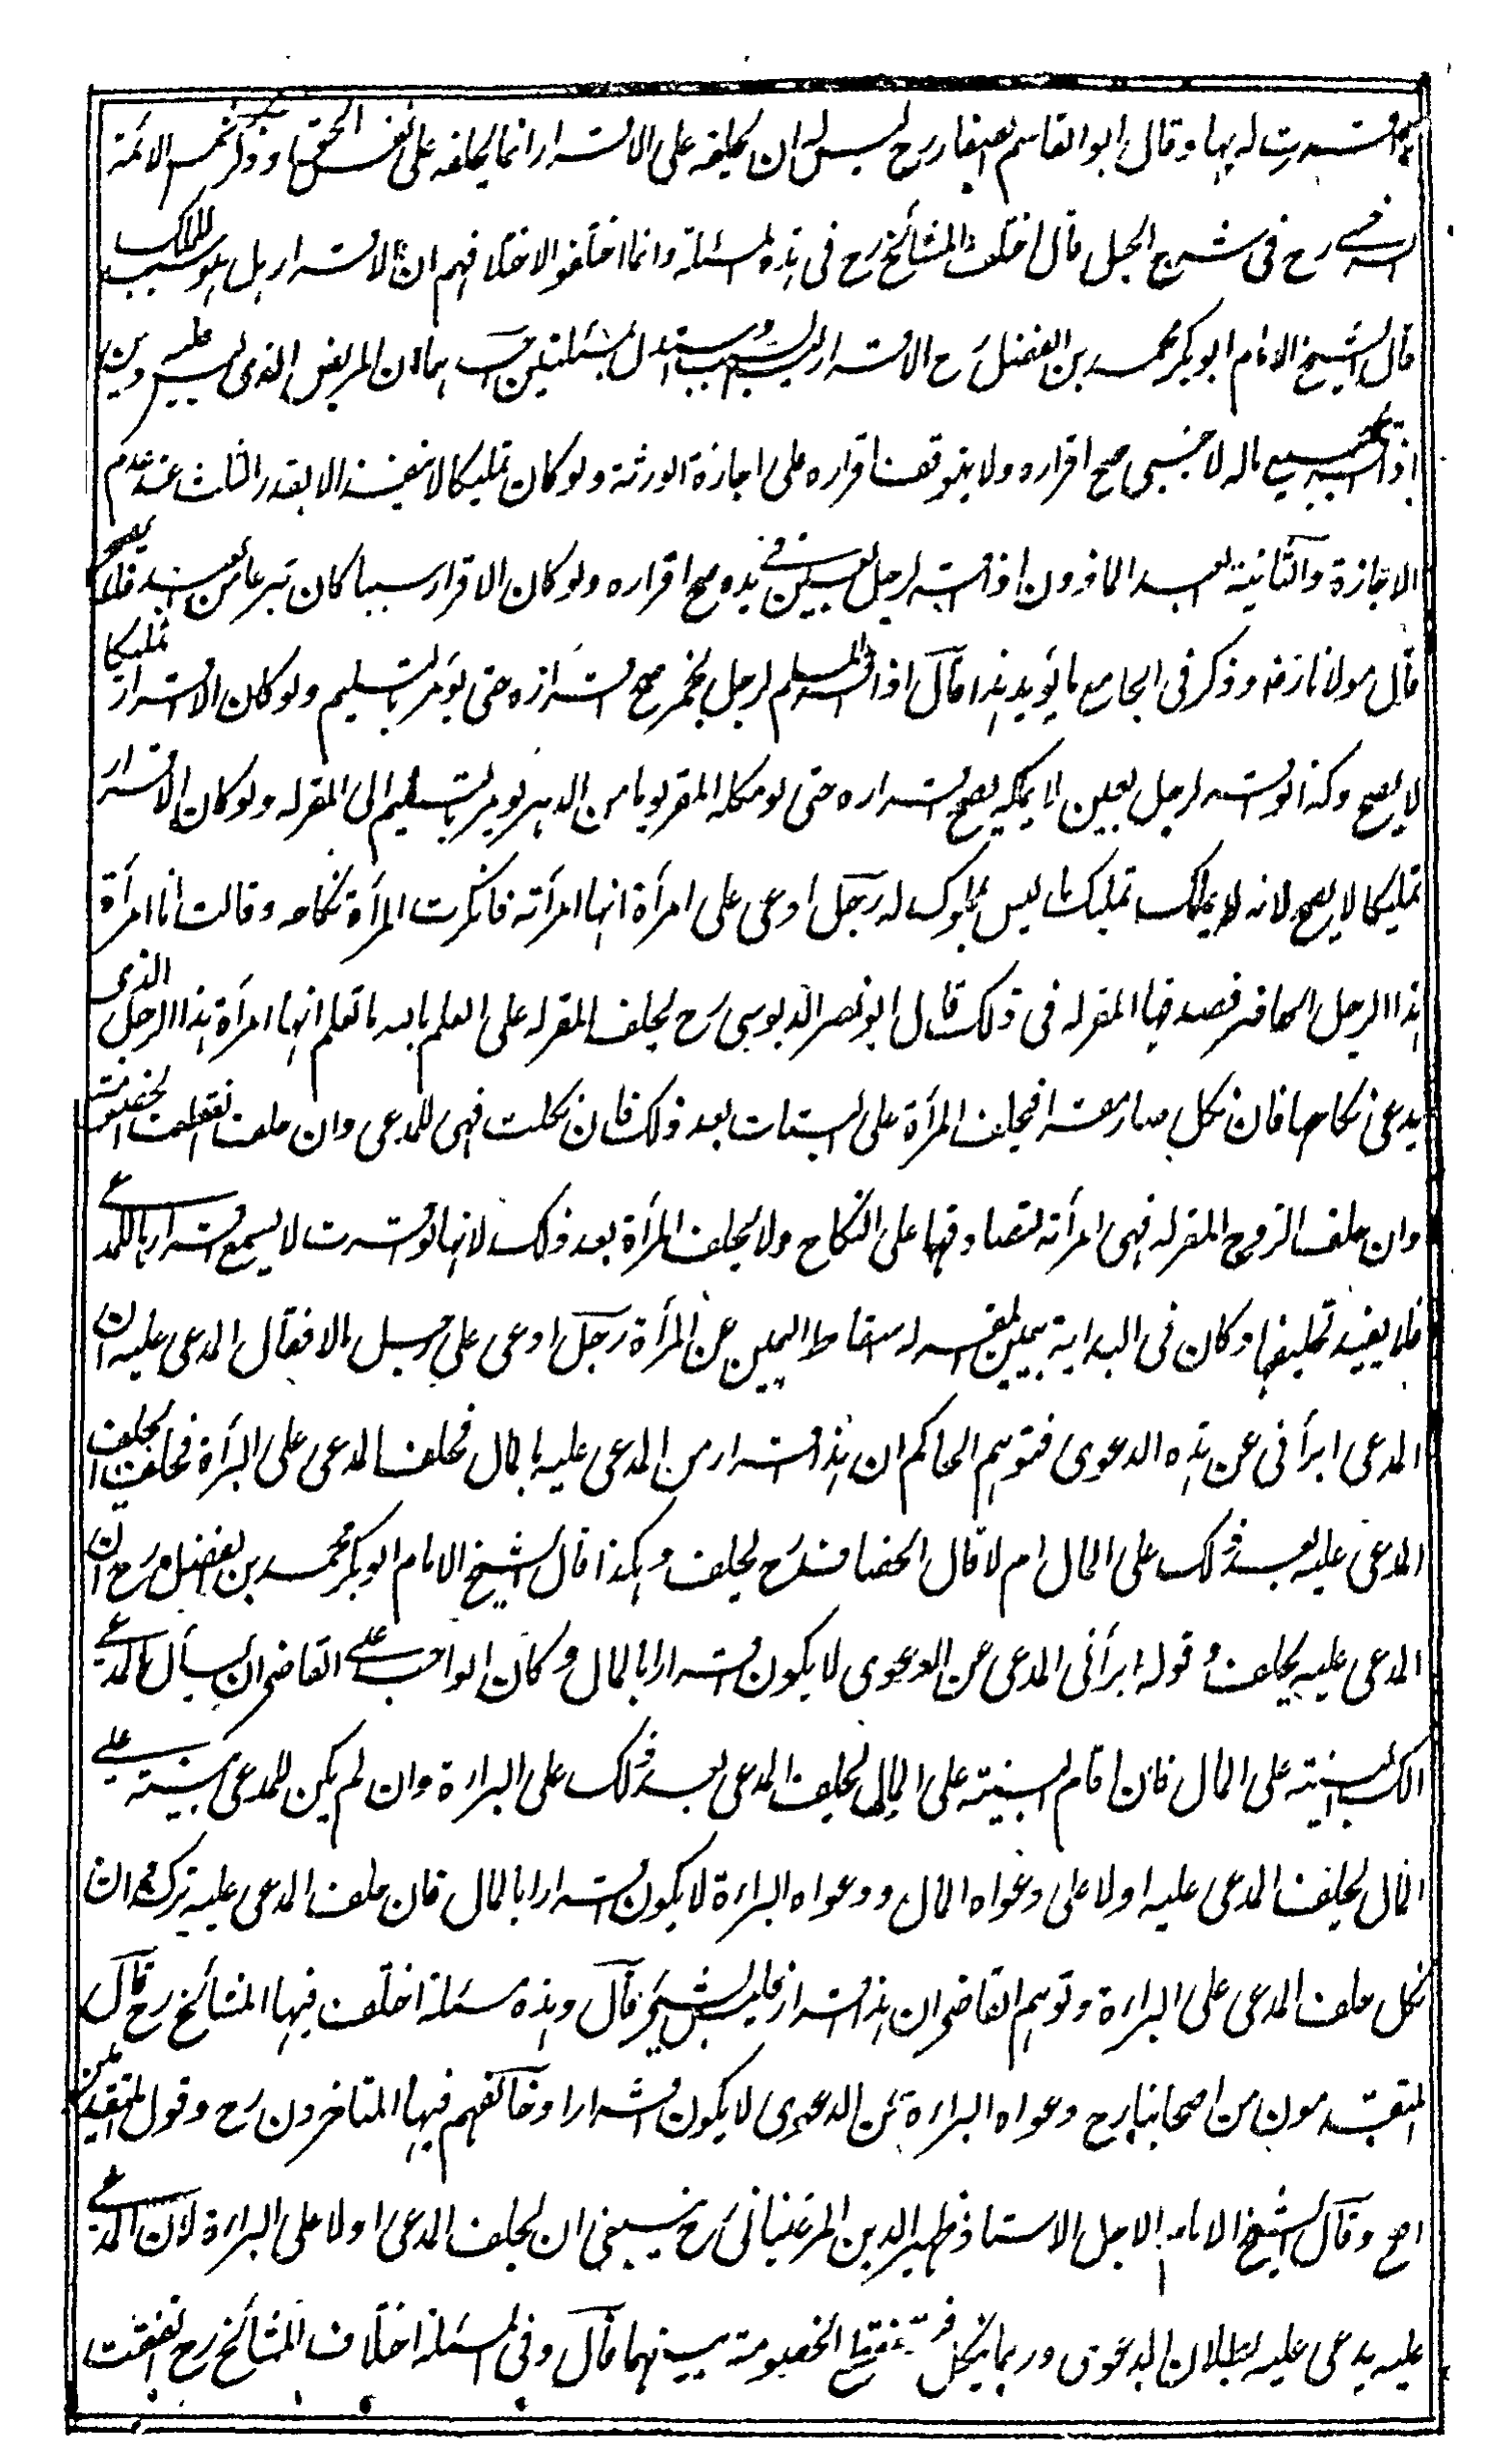 اقرت له بها وقال ابو القاسم الصفار رح ليس له ان يحلفه على الاقرار انما يحلفه على نفس الحق وذكر شمس الائمة
السرخسى رح فى شرح الحيل قال اختلف المشائخ رح فى هذه المسئلة وانما اختلفوا لاختلافهم ان الاقرار هل هو سبب للملك
قال الشيخ الامام ابو بكر محمد بن الفضل رح الاقرار ليس بسبب واستدل بمسئلتين احدهما ان المريض الذى ليس عليه دين
اذا اقر بجميع ماله لاجنبى صح اقراره ولا يتوقف اقراره على اجازة الورثة ولو كان تمليكا لا ينفذ الا بقدر الثلث عند عدم
الاجازة والثانية العبد الماذون اذا اقر لرجل بعين فى يده صح اقراره ولو كان الاقرار سببا كان تبرعا من العبد فلا يصح
قال مولانا رضه وذكر فى الجامع ما يؤيد هذا قال اذا اقر المسلم لرجل بخمر صح اقراره حتى يؤمر بالتسليم ولو كان الاقرار تمليكا
لا يصح وكذا لو اقر لرجل بعين لا يملكه يصح اقراره حتى لو ملكه المقر يوما من الدهر يومر بالتسليم الى المقر له ولو كان الاقرار
تمليكا لا يصح لانه لا يملك تمليك ما ليس بمملوك له رجل ادعى على امرأة انها امرأته فانكرت المرأة نكاحه وقالت انا امرأة
هذا الرجل الحاضر فصدقها المقر له فى ذلك قال ابو نصر الدبوسى رح يحلف المقر له على العلم بالله ما تعلم انها امرأة هذا الرجل الذى
يدعى نكاحها فان نكل صار مقرا فيحلف المرأة على البتات بعد ذلك فان نكلت فهى للمدعى وان حلفت انقطعت الخصومة
وان حلف الزوج المقر له فهى امرأته لتصادقهما على النكاح ولا يحلف المرأة بعد ذلك لانها لو اقرت لا يسمع اقرارها للمدعى
فلا يفيد تحليفها وكان فى البداية بيمين المقر له اسقاط اليمين عن المرأة رجل ادعى على رجل مالا فقال المدعى عليه ان
المدعى ابرأنى عن هذه الدعوى فتوهم الحاكم ان هذا اقرار من المدعى عليه بالمال فحلف المدعى على البرأة فحلف ايحلف
المدعى عليه بعد ذلك على المال ام لا قال الخصاف رح يحلف وهكذا قال الشيخ الامام ابو بكر محمد بن الفضل رح ان
المدعى عليه يحلف وقوله ابرأنى المدعى عن الدعوى لا يكون اقرارا بالمال وكان الواجب على القاضى ان يسأل المدعى
الك البينة على المال فان اقام البينة على المال يحلف المدعى بعد ذلك على البراءة وان لم يكن للمدعى بينة على
المال يحلف المدعى عليه اولا على دعواه المال ودعواه البراءة لا يكون اقرارا بالمال فان حلف المدعى عليه ترك وان
نكل حلف المدعى على البراءة وتوهم القاضى ان هذا اقرار فليس بشىء قال وهذه مسئلة اختلف فيها المشائخ رح قال
المتقدمون من اصحابنا رح دعواه البراءة عن الدعوى لا يكون اقرارا وخالفهم فيها المتاخرون رح وقول المتقدمين
اصح وقال الشيخ الامام الاجل الاستاذ ظهير الدين المرغينانى رح ينبغى ان يحلف المدعى اولا على البراءة لان المدعى
عليه يدعى عليه بطلان الدعوى وربما ينكل فتنقطع الخصومة بينهما قال وفى المسئلة اختلاف المشائخ رح اتفقت